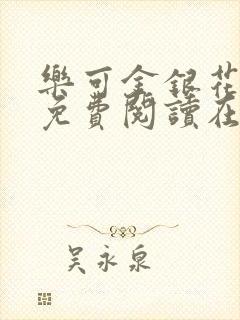 樂可金銀花
免費閱讀在
吳永泉